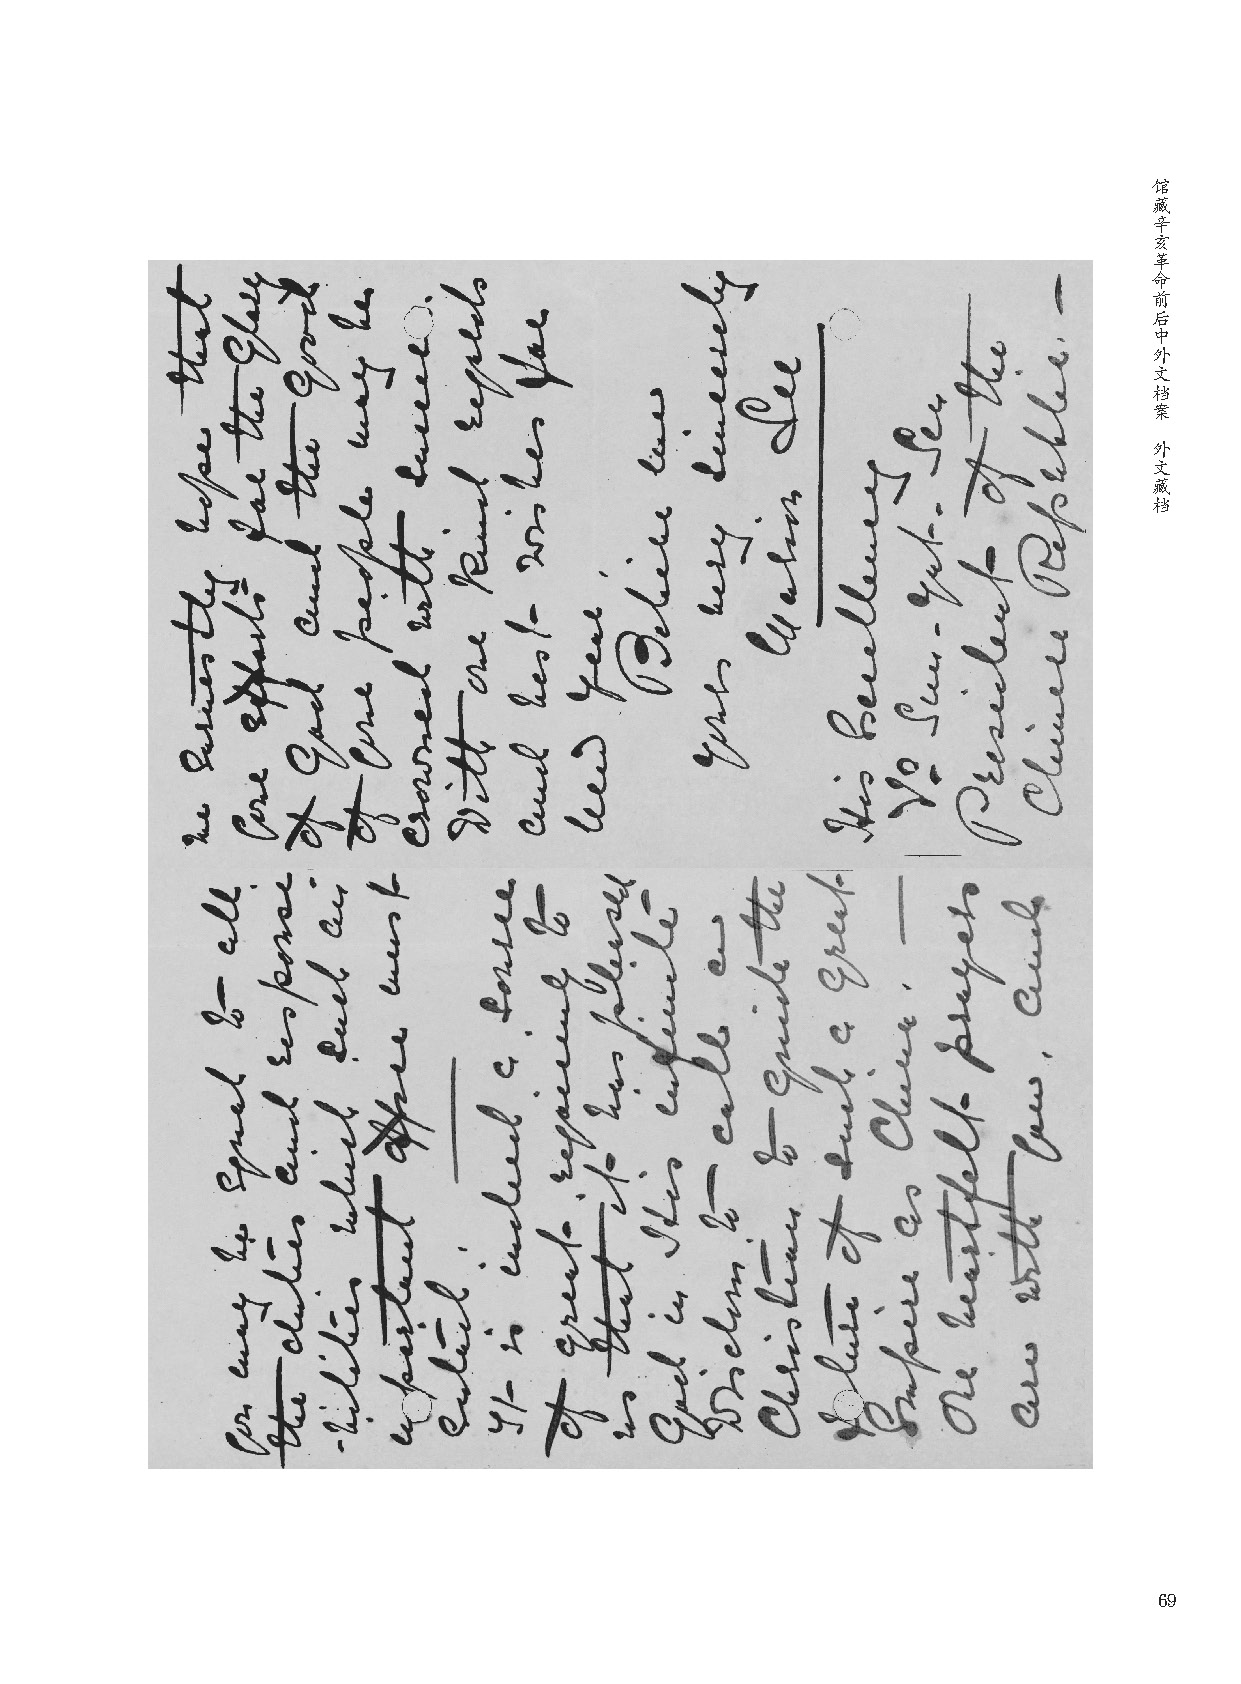 you may be Equal to all
the duties and response
-bilities which such an
important office must
Entail.
It is indeed a source
of great rejoicing to
us that it has pleased
God in His infinite
Wisdom to call a
Christian to guide the
future of such a great
Empire as China. —
Our heartfelt prayers
are with you, and
we Earnestly hope that
your Efforts for the Glory
of God and the Good
of your people may be
crowned with success.
With our kind regards
and best wishes for
new year
Believe me
Yours very sincerely
His Excellency
Dr Sun-Yat-Sen
President of the
Chinese Republic. —
馆藏辛亥革命前后中外文档案 外文藏档
69